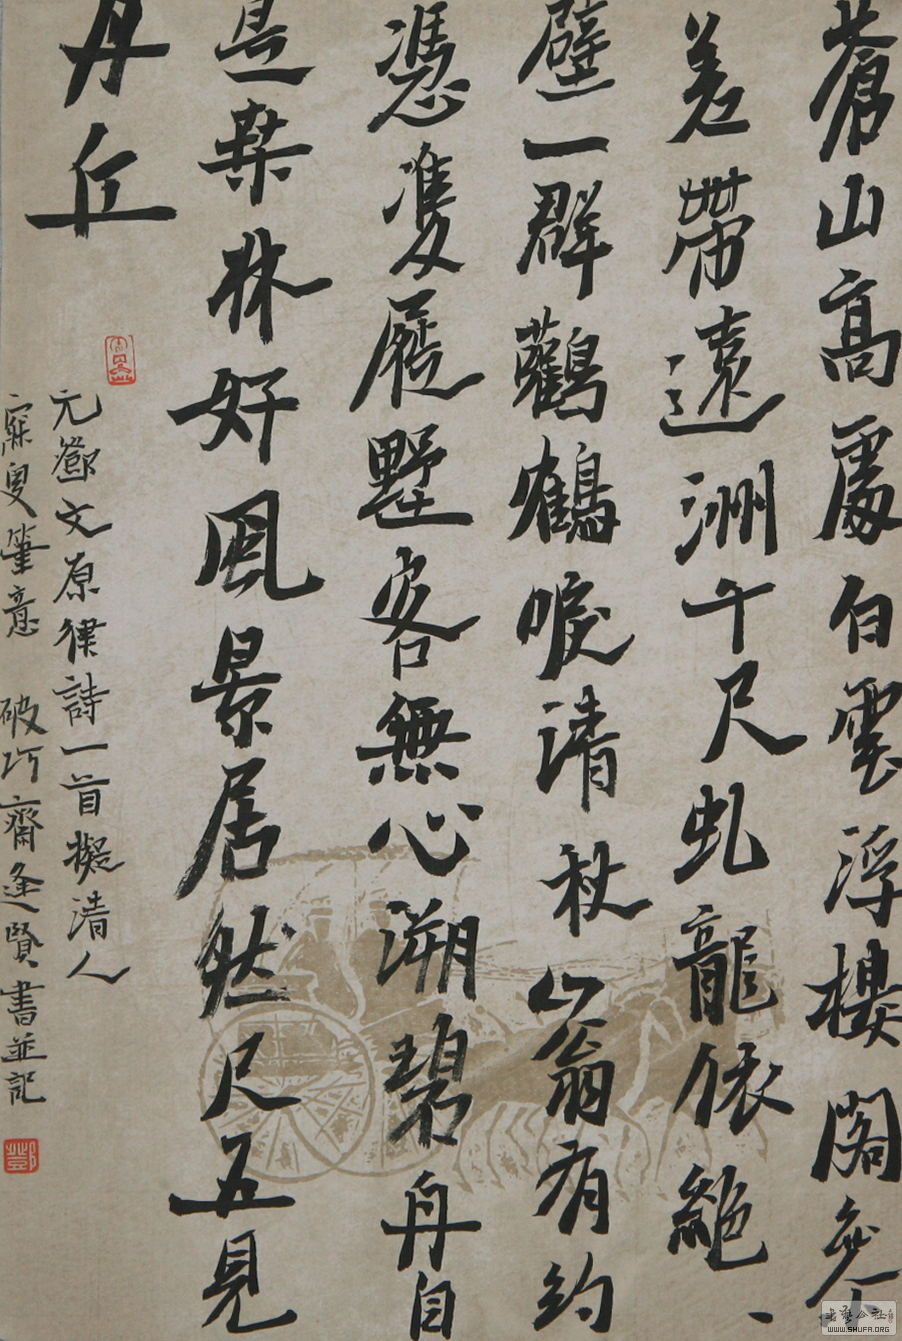 蒼山高處白雲浮樓閣參
差帶遠洲千尺虬龍依絕、
壁一群鸛鶴唳清秋山翁有約
憑隻屐墅客無心溯碧舟自
是桑林好風景居然尺五見
丹丘
元鄧文原律詩一首擬清人
寐叟筆意 破巧齋逢賢書並記
書藝公社
WWW.SHUFA.ORG